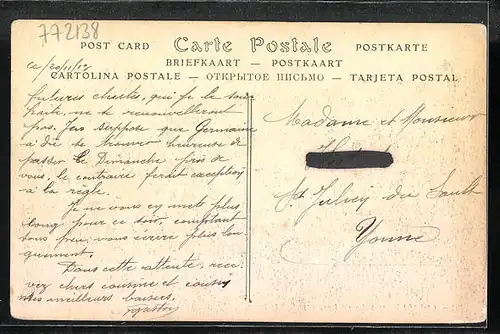 772138
POST CARD Carte Postale POSTKARTE
BRIEFKAART — POSTKAART
CARTOLINA POSTALE — ОТКРЫТОЕ ПИСЬМО — TARJETA POSTAL
futures chutes, qui je le sou-
haite, ne se renouvelleront
pas. Je suppose que Germaine
a dû se trouver heureuse de
passer le Dimanche près de
vous, le contraire ferait exception
à la règle.
Je ne vous en mets plus
long pour ce soir, comptant
sous peu vous écrire plus lon-
guement.
Dans cette attente, rece-
vez chers cousine et cousin
mes meilleurs baisers.
Gaston
Madame et Monsieur
St Julien du Sault
Yonne